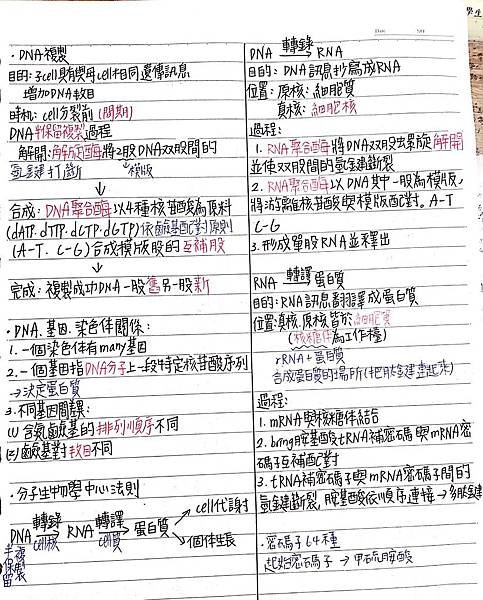 學生
Date
No
·DNA複製
目的:子cell具有與母cell相同遺傳訊息
增加DNA數目
時机:cell分裂前(間期)
DNA半保留複製過程
解開:解旋酶將2股DNA双股間的
氫鍵打斷 模版
↓
合成:DNA聚合酶以4種核苷酸為原料
(dATP.dTTP.dCTP.dGTP)依鹼基配對原則
(A-T. C-G)合成模版股的互補股
↓
完成:複製成功DNA一股舊另一股新
·DNA.基因.染色体關係:
1.一個染色体有many基因
2.一個基因指DNA分子上一段特定核苷酸序列
→決定蛋白質
3.不同基因間課:
(1)含氮鹼基的排列順序不同
(2)鹼基對數目不同
·分子生物學中心法則
DNA 轉錄 cell核 → RNA 轉譯 cell質 → 蛋白質 → cell代謝
→ 個体生長
半保留複製
DNA 轉錄→ RNA
目的:DNA訊息抄寫成RNA
位置:原核:細胞質
真核:細胞核
過程:
1.RNA聚合酶將DNA双股螺旋解開
並使双股間的氫鍵斷裂
2.RNA聚合酶以DNA其中一股為模版,
將游離核苷酸與模版配對。A-T
C-G
3.形成單股RNA並釋出
RNA 轉譯→ 蛋白質
目的:RNA訊息翻譯成蛋白質
位置:真核.原核皆於細胞質
(核糖体為工作檯)
↑RNA+蛋白質
合成蛋白質的場所(把肽鍵連起來)
過程:
1.mRNA與核糖体結合
2.bring胺基酸tRNA補密碼與mRNA密
碼子互補配對
3.tRNA補密碼子與mRNA密碼子間的
氫鍵斷裂,胺基酸依順序連接→多肽鏈
·密碼子64種
起始密碼子→甲硫胺酸